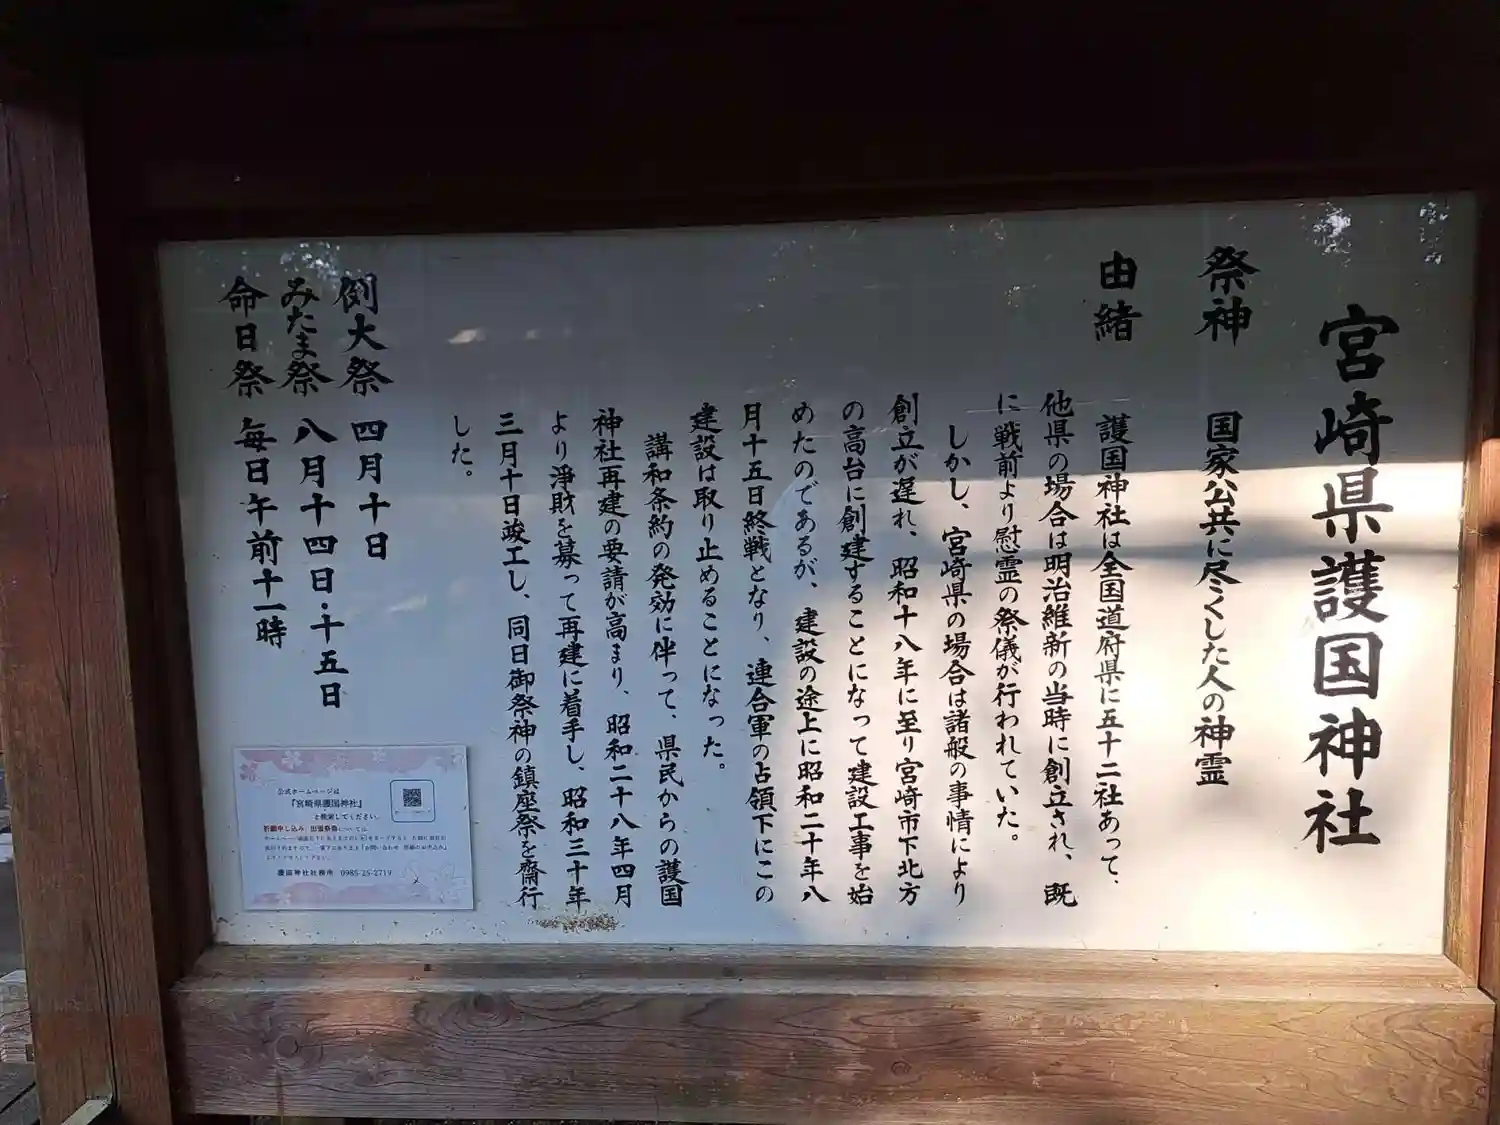 宮崎県護国神社
祭神　国家公共に尽くした人の神霊
由緒
護国神社は全国道府県に五十二社あって、
他県の場合は明治維新の当時に創立され、既
に戦前より慰霊の祭儀が行われていた。
しかし、宮崎県の場合は諸般の事情により
創立が遅れ、昭和十八年に至り宮崎市下北方
の高台に創建することになって建設工事を始
めたのであるが、建設の途上に昭和二十年八
月十五日終戦となり、連合軍の占領下にこの
建設は取り止めることになった。
講和条約の発効に伴って、県民からの護国
神社再建の要請が高まり、昭和二十八年四月
より淨財を募って再建に着手し、昭和三十年
三月十日竣工し、同日御祭神の鎮座祭を齋行
した。
例大祭　四月十日
みたま祭　八月十四日・十五日
命日祭　毎日午前十一時
公式ホームページは
『宮崎県護国神社』
と検索してください。
護国神社社務所　0985-25-2719